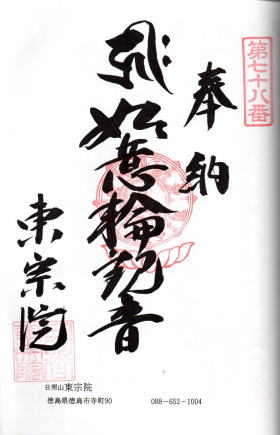 第七十八番
奉納
如意輪観音
東宗院
日照山東宗院
徳島県徳島市寺町90 088-652-1004